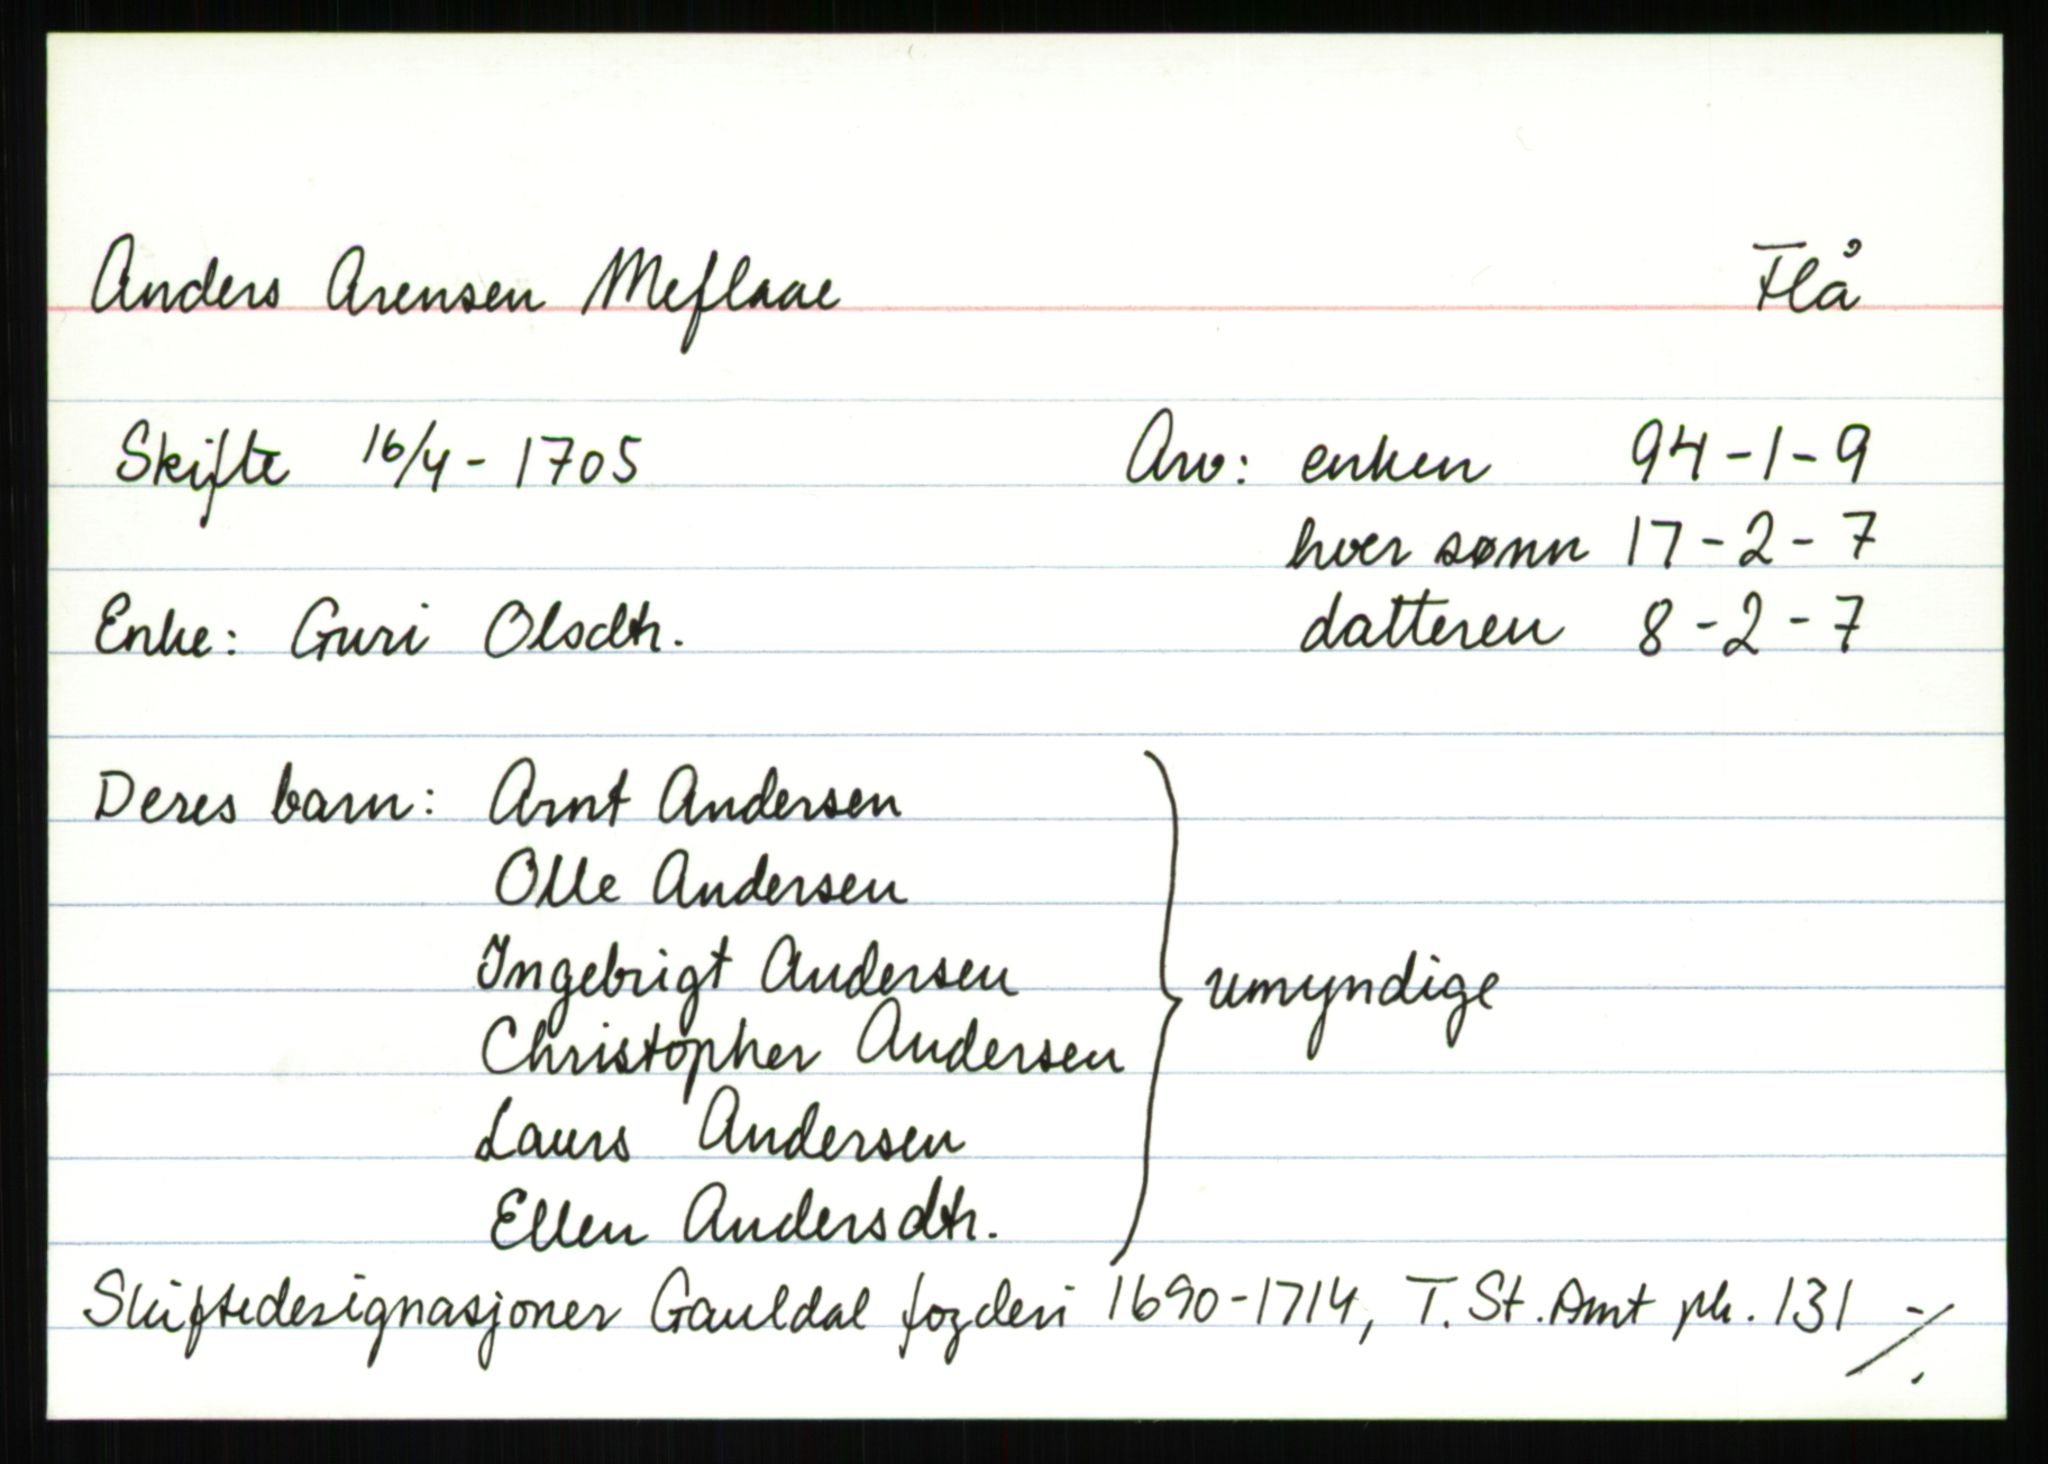 Anders Arensen Meflaae Flå
Skifte 16/4 - 1705 Arv: enken 94-1-9
hver sønn 17-2-7
Enke: Guri Olsdtr. datteren 8-2-7
Deres barn: Arnt Andersen
Olle Andersen
Ingebrigt Andersen
umyndige
Christopher Andersen
Laurs Andersen
Ellen Andersdtr.
Skiftedesignasjoner Gauldal fogderi 1690-1714, T. St. Amt pk. 131 ./.